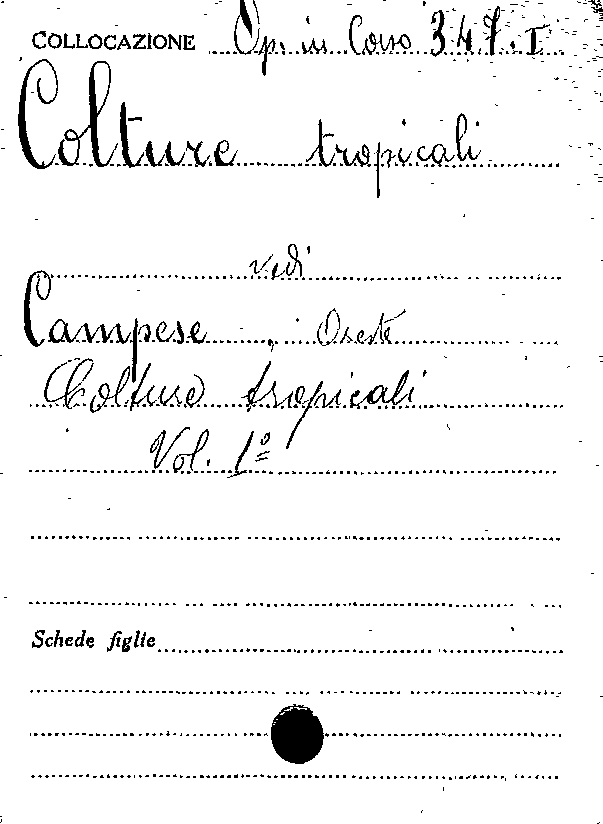 COLLOCAZIONE Op. in Corso 347. I
Colture tropicali
vedi
Campese, Oreste
Colture tropicali
Vol. 1º
Schede figlie